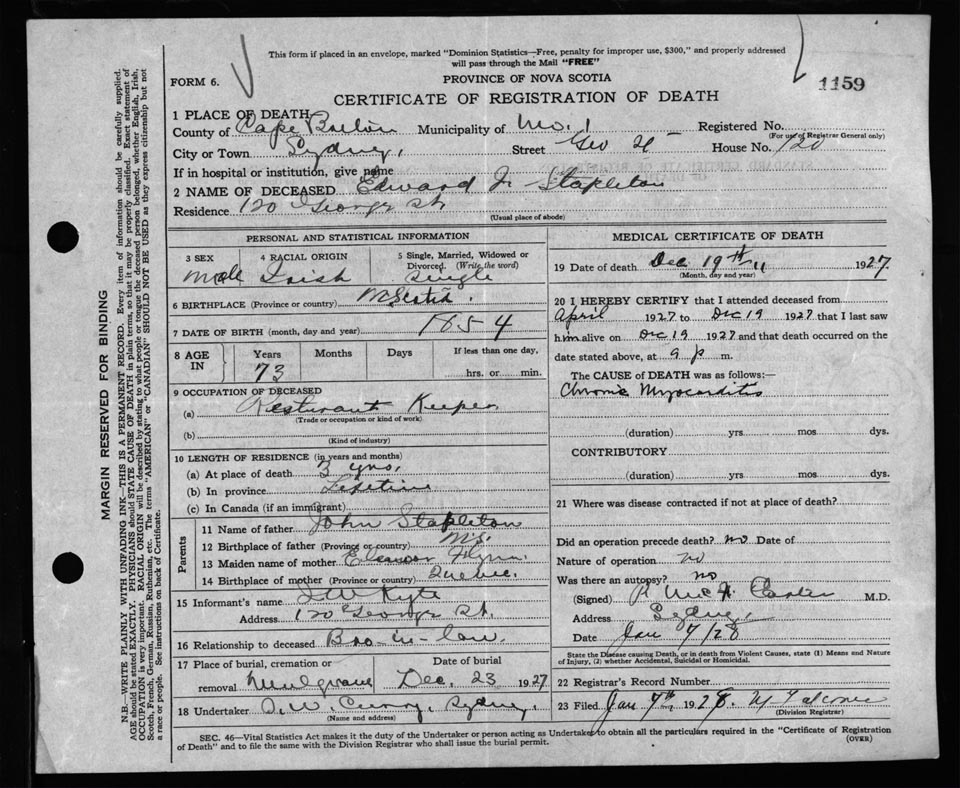 This form if placed in an envelope, marked "Dominion Statistics—Free, penalty for improper use, $300," and properly addressed
will pass through the Mail "FREE"
FORM 6.
PROVINCE OF NOVA SCOTIA
1159
CERTIFICATE OF REGISTRATION OF DEATH
1 PLACE OF DEATH
County of Cape Breton Municipality of No. 1 Registered No.
(For use of Registrar General only)
City or Town Sydney, Street Geo St House No. 120
If in hospital or institution, give name
2 NAME OF DECEASED Edward J. Stapleton
Residence 120 George St.
(Usual place of abode)
PERSONAL AND STATISTICAL INFORMATION
3 SEX 4 RACIAL ORIGIN 5 Single, Married, Widowed or
Divorced. (Write the word)
Male Irish Single
6 BIRTHPLACE (Province or country) N. Scotia.
7 DATE OF BIRTH (month, day and year) 1854
8 AGE IN Years Months Days If less than one day,
73 hrs. or min.
9 OCCUPATION OF DECEASED
(a) Resturant Keeper
(Trade or occupation or kind of work)
(b)
(Kind of industry)
10 LENGTH OF RESIDENCE (in years and months)
(a) At place of death 3 yrs.
(b) In province Lifetime
(c) In Canada (if an immigrant)
Parents
11 Name of father John Stapleton
12 Birthplace of father (Province or country) N.S.
13 Maiden name of mother Eleanor Flynn
14 Birthplace of mother (Province or country) Quebec.
15 Informant's name Kyte
Address 120 George St.
16 Relationship to deceased Bro-in-law.
17 Place of burial, cremation or Date of burial
removal Mulgrave Dec. 23 1927
18 Undertaker Sydney.
(Name and address)
MEDICAL CERTIFICATE OF DEATH
19 Date of death Dec 19th 1927.
(Month, day and year)
20 I HEREBY CERTIFY that I attended deceased from
April 1927 to Dec 19 1927 that I last saw
him alive on Dec 19 1927 and that death occurred on the
date stated above, at 9 p m.
The CAUSE of DEATH was as follows:—
Chronic Myocarditis
(duration) yrs mos dys.
CONTRIBUTORY
(duration) yrs. mos. dys.
21 Where was disease contracted if not at place of death?
Did an operation precede death? no Date of
Nature of operation no
Was there an autopsy? no
(Signed) M.D.
Address Sydney
Date Jan 7/28
State the Disease causing Death, or in death from Violent Causes, state (1) Means and Nature
of Injury, (2) whether Accidental, Suicidal or Homicidal.
22 Registrar's Record Number
23 Filed Jan 7th 1928.
(Division Registrar)
SEC. 46—Vital Statistics Act makes it the duty of the Undertaker or person acting as Undertaker to obtain all the particulars required in the "Certificate of Registration
of Death" and to file the same with the Division Registrar who shall issue the burial permit.
(OVER)
MARGIN RESERVED FOR BINDING
N.B.—WRITE PLAINLY WITH UNFADING INK—THIS IS A PERMANENT RECORD. Every item of information should be carefully supplied.
AGE should be stated EXACTLY. PHYSICIANS should STATE CAUSE OF DEATH in plain terms, so that it may be properly classified. Exact statement of
OCCUPATION is very important. RACIAL ORIGIN will be described by stating to what people or tongue the deceased person belonged, whether English, Irish,
Scotch, French, German, Russian, Ruthenian, etc. The terms "AMERICAN" or "CANADIAN" SHOULD NOT BE USED as they express citizenship but not
a race or people. See instructions on back of Certificate.